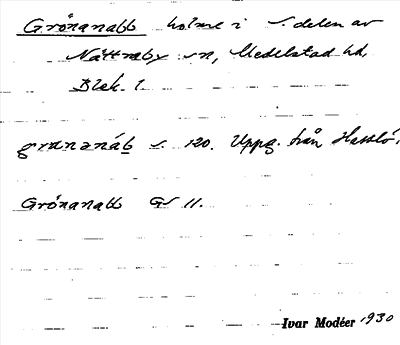 Grönanabb holme i s. delen av
Nättraby sn, Medelstad hd,
Blek. l.
grønanáb s. 120. Uppg. från Hasslö.
Grönanabb GS 11.
Ivar Modéer 1930